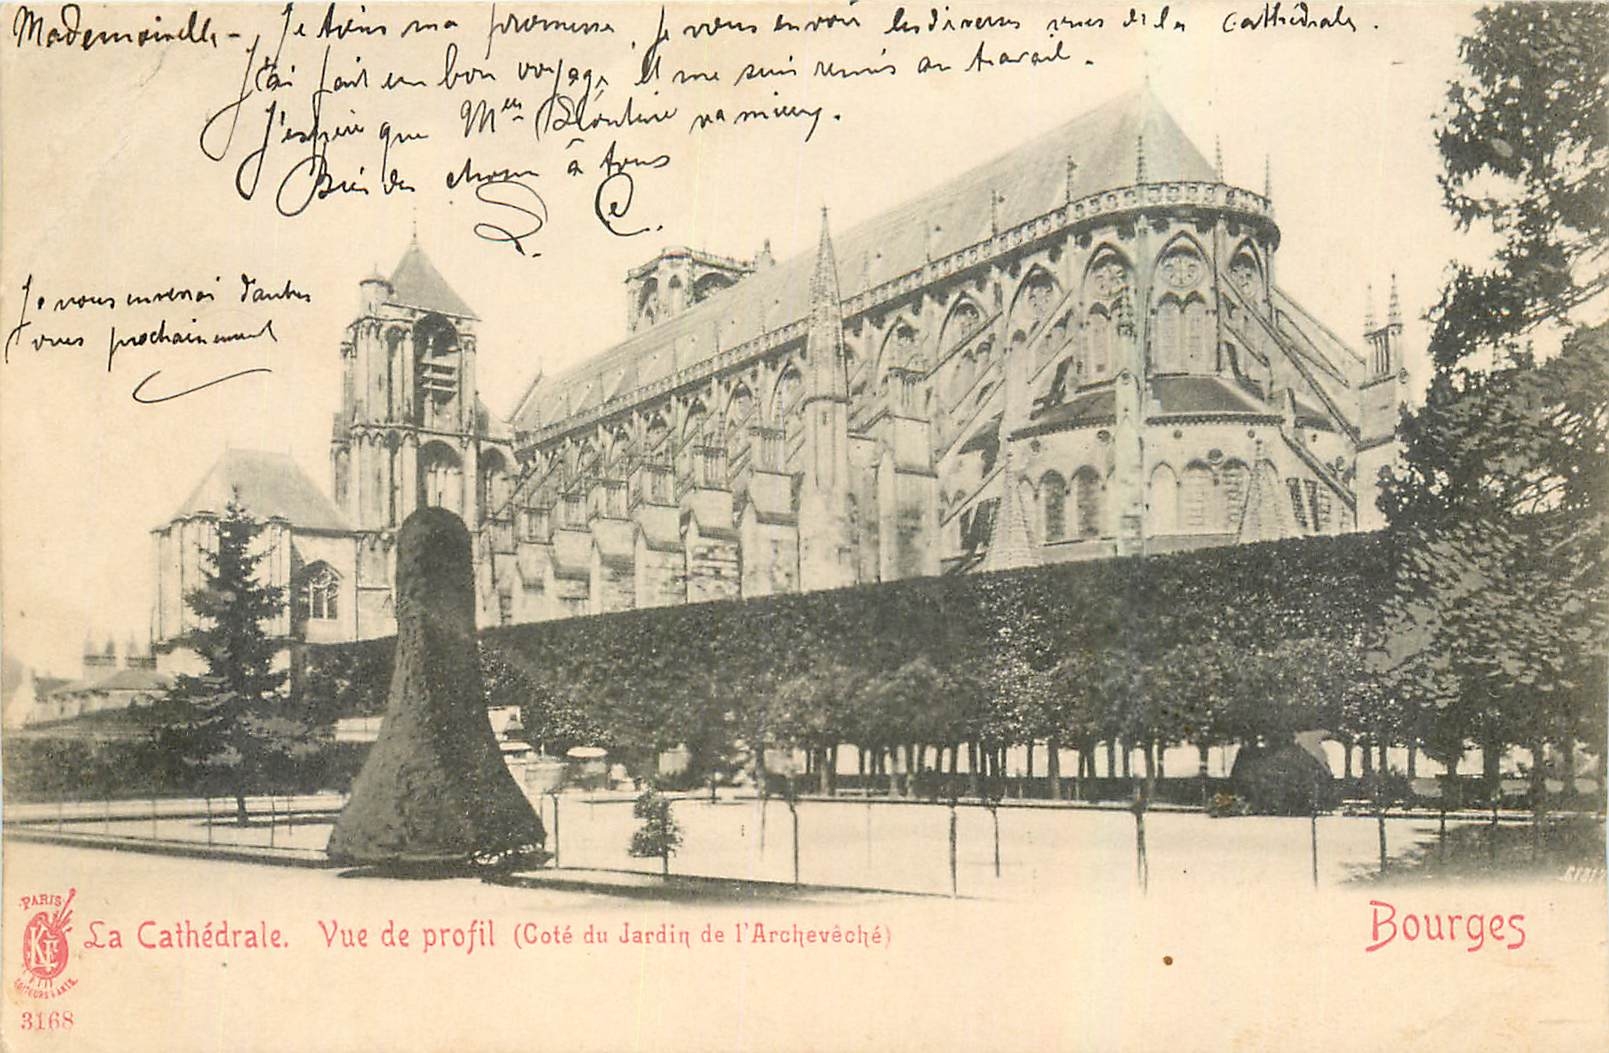 Mademoiselle - Je tiens ma promesse, je vous envoie les diverses vues de la Cathédrale.
J'ai fait un bon voyage et me suis remis au travail.
J'espère que Melle va mieux.
Bien des choses à tous
Je vous enverrai d'autres
vues prochainement
PARIS
KF
EDITEURS
3168
La Cathédrale. Vue de profil (Coté du Jardin de l'Archevêché)
Bourges